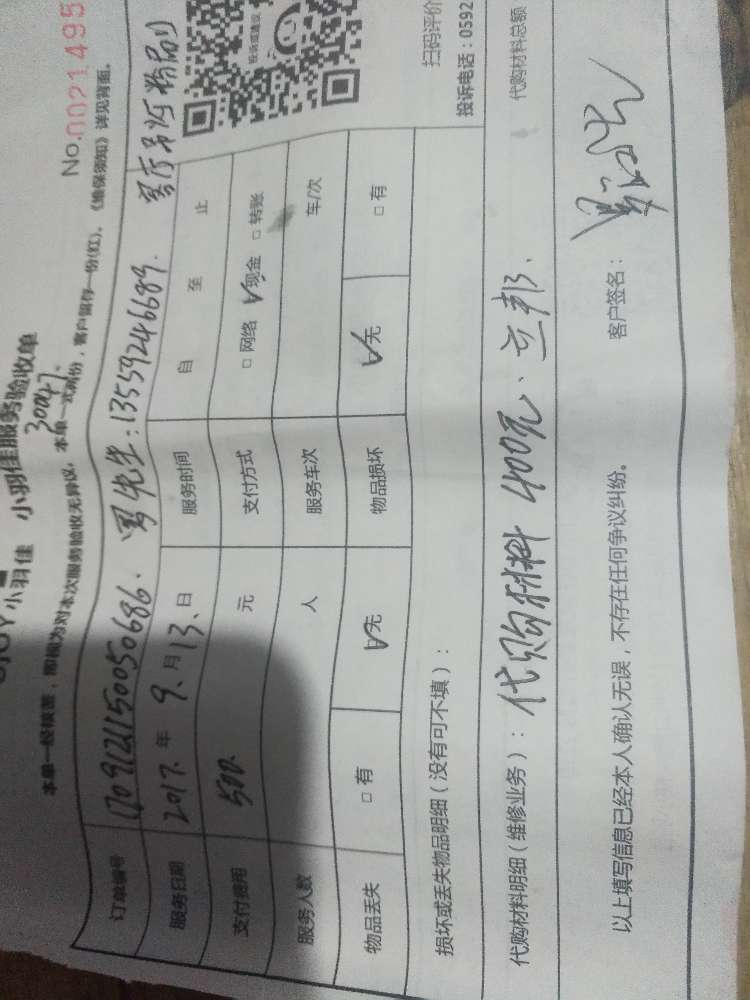 小羽佳 小羽佳服务验收单
No.0021495
30047.
本单一经核签，即视为对本次服务验收无异议。本单一式两份，客户留存一份(红)。《维保须知》详见背面。
订单编号 1709121150050686. 罗先生:13559246689.
服务日期 2017.年 9.月 13.日 服务时间 自 至 止
支付费用 500. 元 支付方式 □网络 ☑现金 □转账
服务人数 人 服务车次 车/次
物品丢失 □有 ☑无 物品损坏 ☑无 □有
投诉或建议
扫码评价
投诉电话：0592
损坏或丢失物品明细（没有可不填）：
代购材料明细（维修业务）：代购材料 400元、立邦、
代购材料总额
以上填写信息已经本人确认无误，不存在任何争议纠纷。
客户签名：